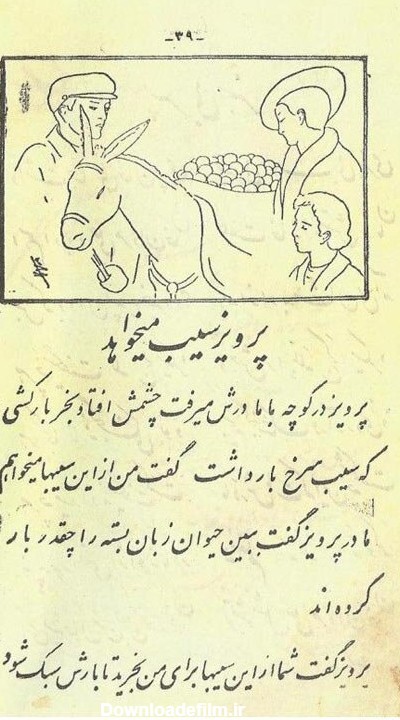 -۳۹-
پرویز سیب میخواهد
پرویز در کوچه با مادرش میرفت چشمش افتاد بخر بارکشی
که سیب سرخ بار داشت گفت من از این سیبها میخواهم
مادر پرویز گفت ببین حیوان زبان بسته را چقدر بار
کرده اند
پرویز گفت شما از این سیبها برای من بخرید تا بارش سبک شود
Downloadefilm.ir